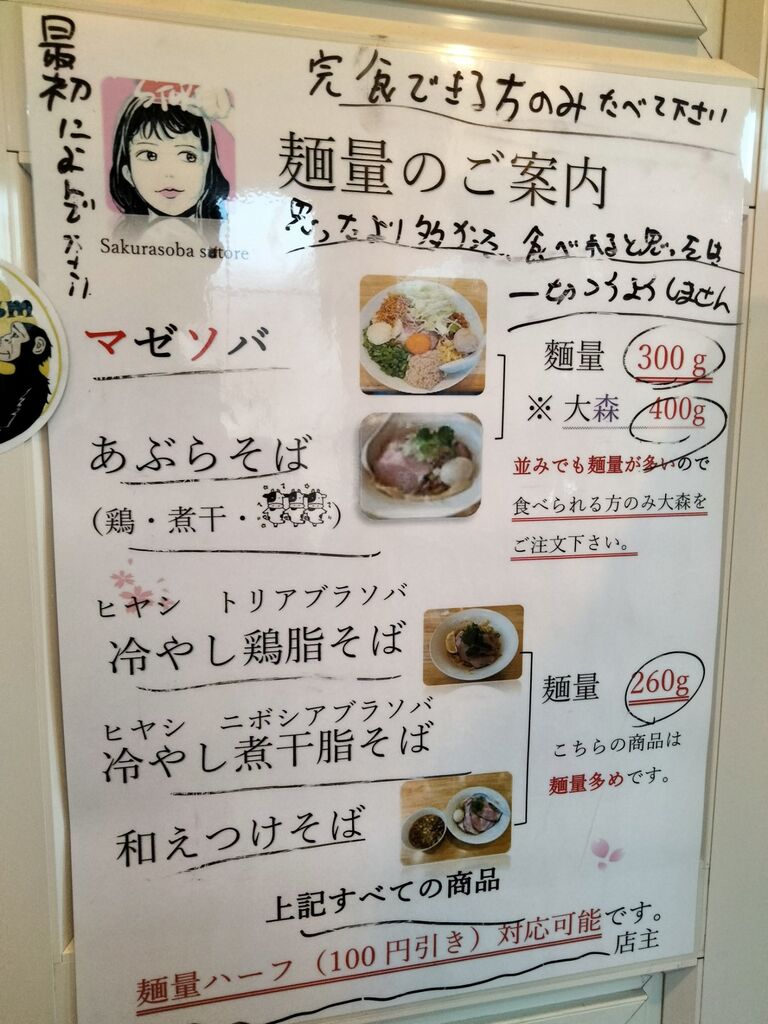 最初によんで下さい
完食できる方のみたべて下さい
麺量のご案内
Sakurasoba satore
思ったより多かった、食べれると思ったは
一切つうようしません
マゼソバ
麵量 300 g
※ 大森 400g
あぶらそば
（鶏・煮干・
）
並みでも麺量が多いので
食べられる方のみ大森を
ご注文下さい。
ヒヤシ トリアブラソバ
冷やし鶏脂そば
麺量 260g
ヒヤシ ニボシアブラソバ
冷やし煮干脂そば
こちらの商品は
麺量多めです。
和えつけそば
上記すべての商品
麺量ハーフ（100 円引き）対応可能です。
店主